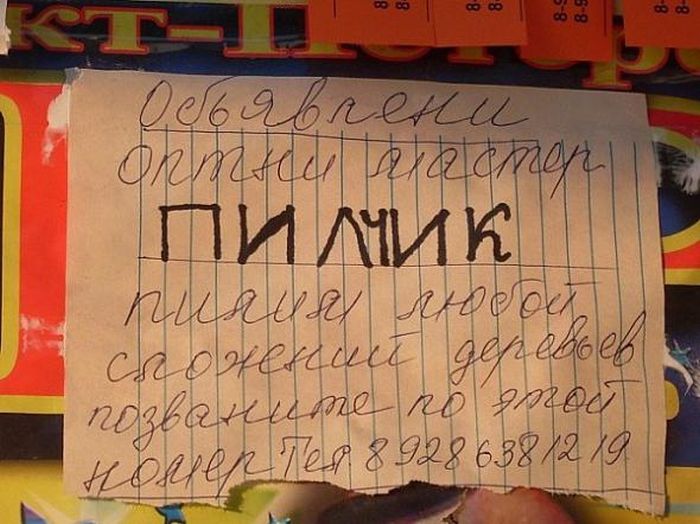 кт-Петер
Обьявлени
оптни мастер
ПИЛЧИК
пилим любой
сложений деревьев
позваните по этой
номер Тел. 89286381219